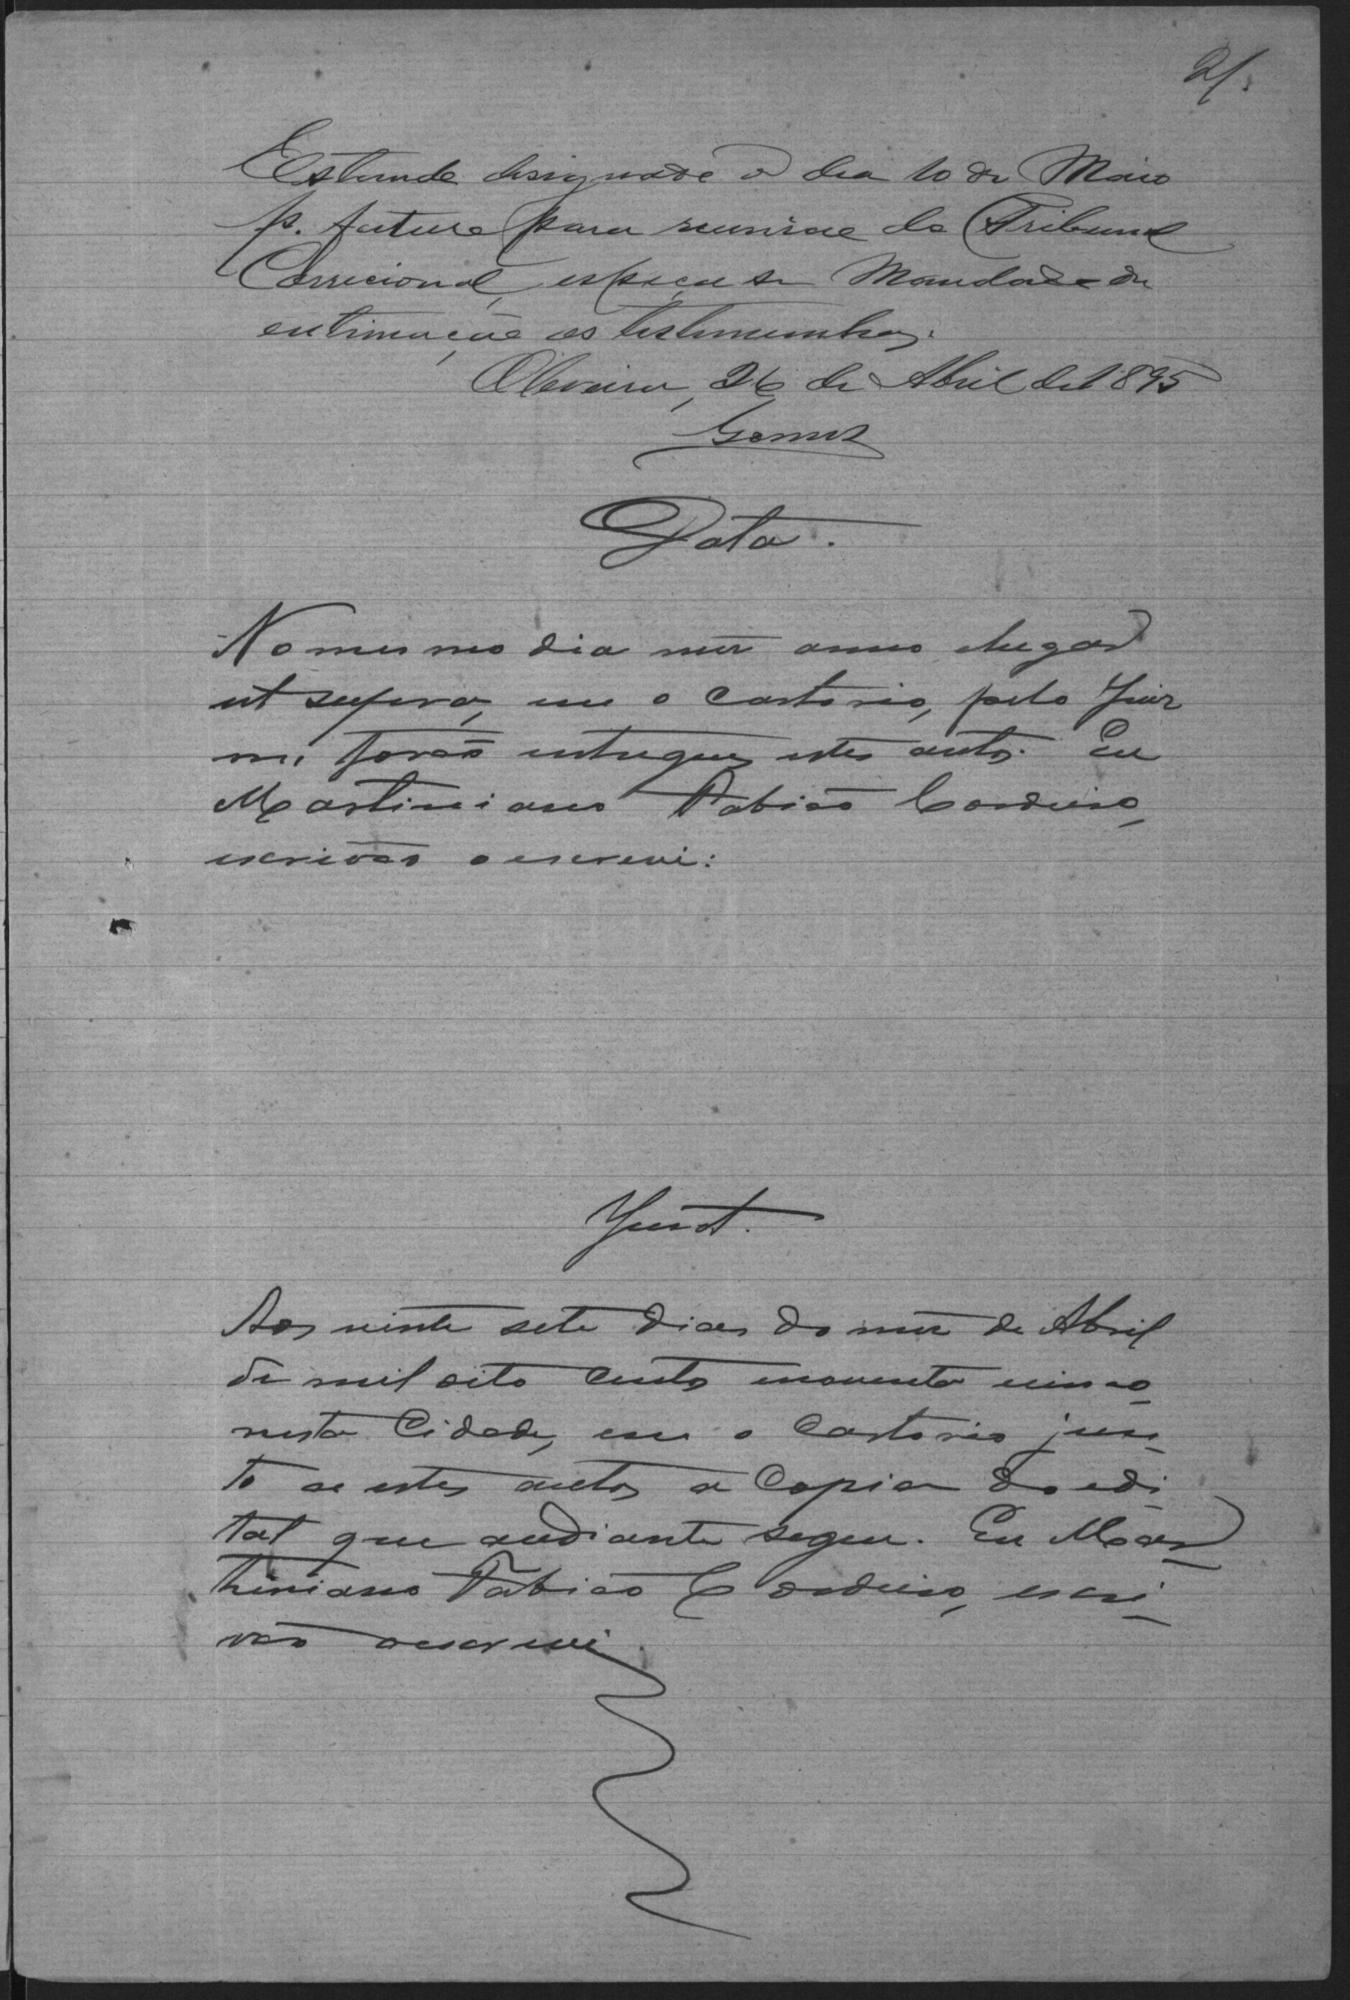 21.
Estando designado o dia 10 de Maio
p. futuro para reunião do Tribunal
Correcional, espeça se Mandado de
entimação as testemunhas.
Oliveira, 26 de Abril de 1895
Gomes
Data.
No mesmo dia mez anno e lugar
ut supra, em o cartorio, pelo Juiz
me forão entregues estes autos. Eu
Martiniano Fabião Cordeiro,
escrivão o escrevi:
Junt.
Aos vinte sete dias do mez de Abril
de mil oito centos noventa cinco
nesta Cidade, em o Cartorio jun-
to a estes autos a Copia do edi-
tal que andiante segue. Eu Mar-
tiniano Fabião Cordeiro, escri-
vão o escrevi